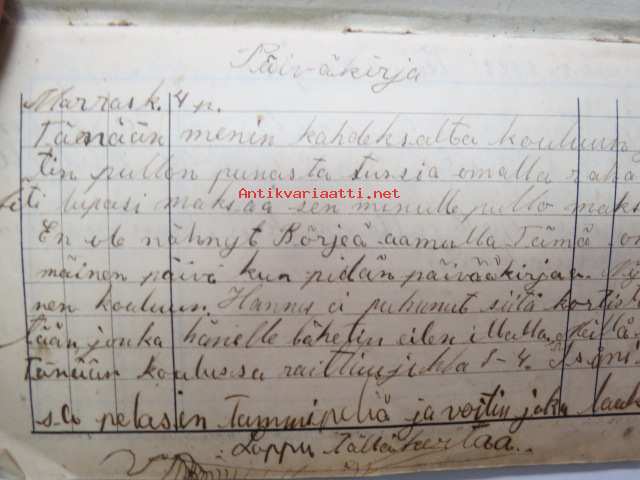 Päiväkirja
Marrask. 4 p.
Tänään menin kahdeksalta kouluun
tin pullon punasta tussia omalla raha
Antikvariaatti.net
äiti lupasi maksaa sen minulle pullo maks
En ole nähnyt Börjeä aamulla Tämä on
mäinen päivä kun pidän päivääkirjaa. Ny
nen kouluun. Hannu ei puhunut siitä kortist
tään jonka hänelle lähetin eilen illalla. Meillä
tänään koulussa raittiusjuhla 3-4. Iseni
sa pelasin Tammipeliä ja voitin joka lauk
Loppu tällä kertaa.